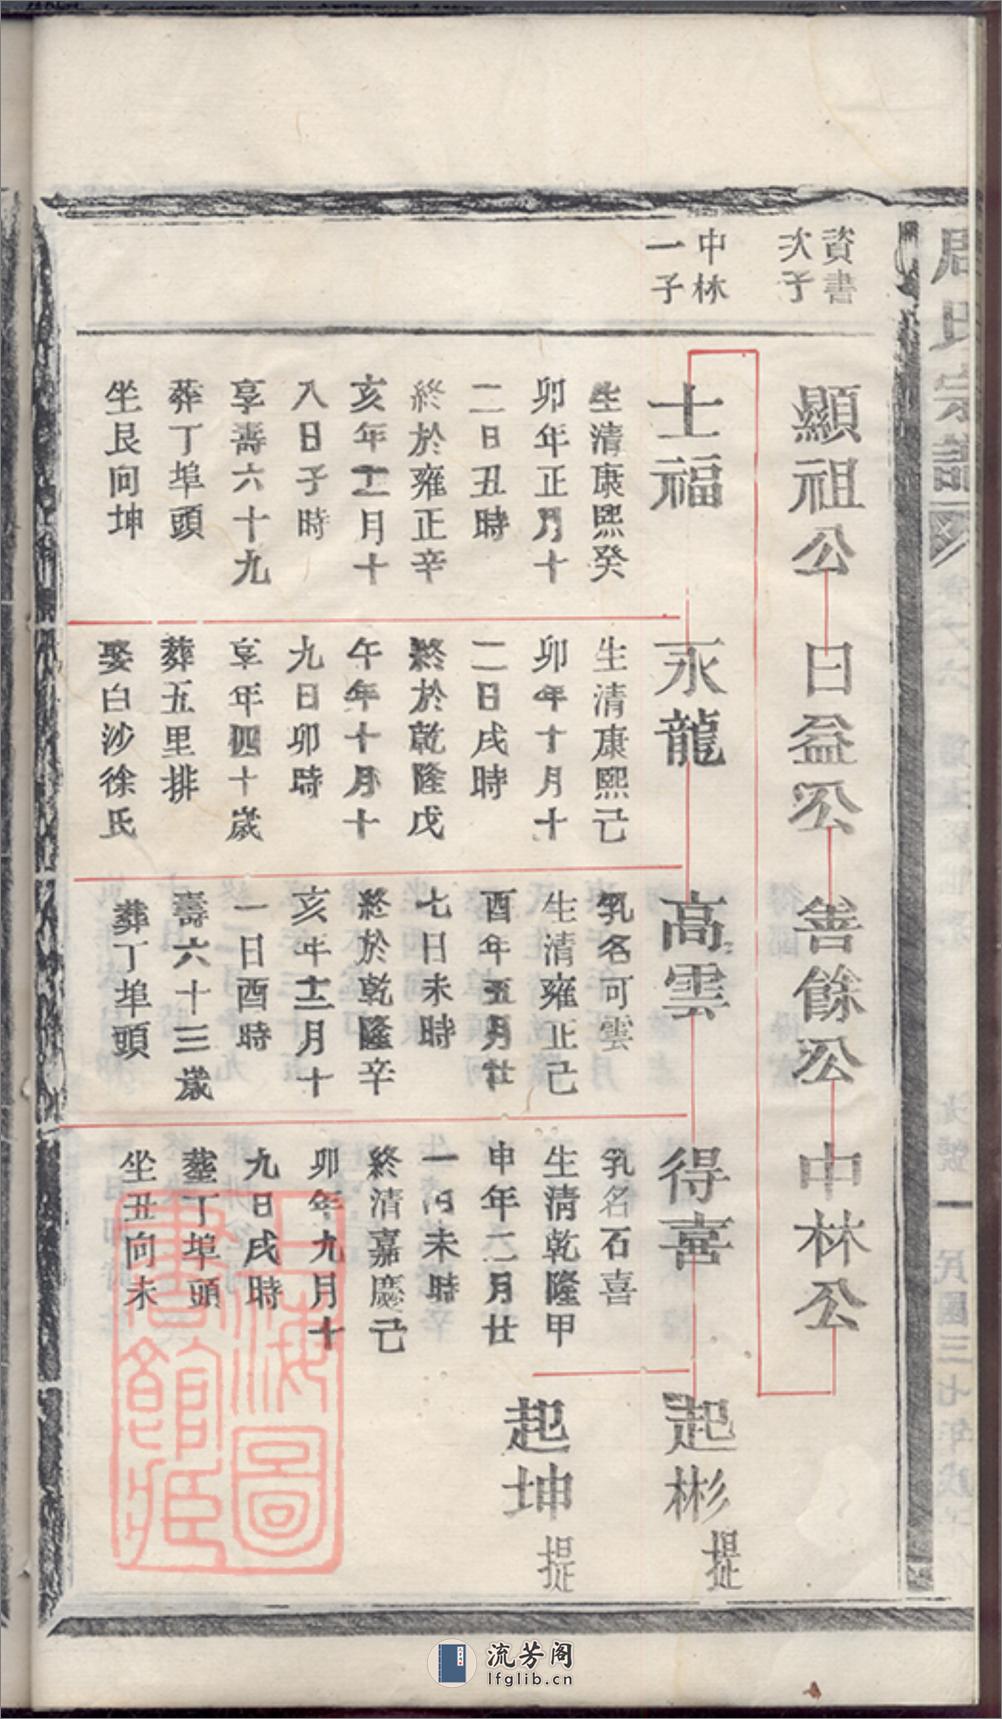 周氏宗譜
民國三七年戊
資書
次子
中林
一子
顯祖公
日益公
善餘公
中林公
士福
生清康熙癸
卯年正月十
二日丑時
終於雍正辛
亥年十二月十
八日子時
享壽六十九
葬丁埠頭
坐艮向坤
永龍
生清康熙己
卯年十月十
二日戌時
終於乾隆戊
午年十月十
九日卯時
享年四十歲
葬五里排
娶白沙徐氏
高雲
乳名可雲
生清雍正己
酉年五月廿
七日未時
終於乾隆辛
亥年十二月十
一日酉時
壽六十三歲
葬丁埠頭
得喜
乳名石喜
生清乾隆甲
申年二月廿
一日未時
終清嘉慶己
卯年九月十
九日戌時
葬丁埠頭
坐丑向未
起彬 提
起坤 提
上海圖
書館藏
流芳阁
lfglib.cn